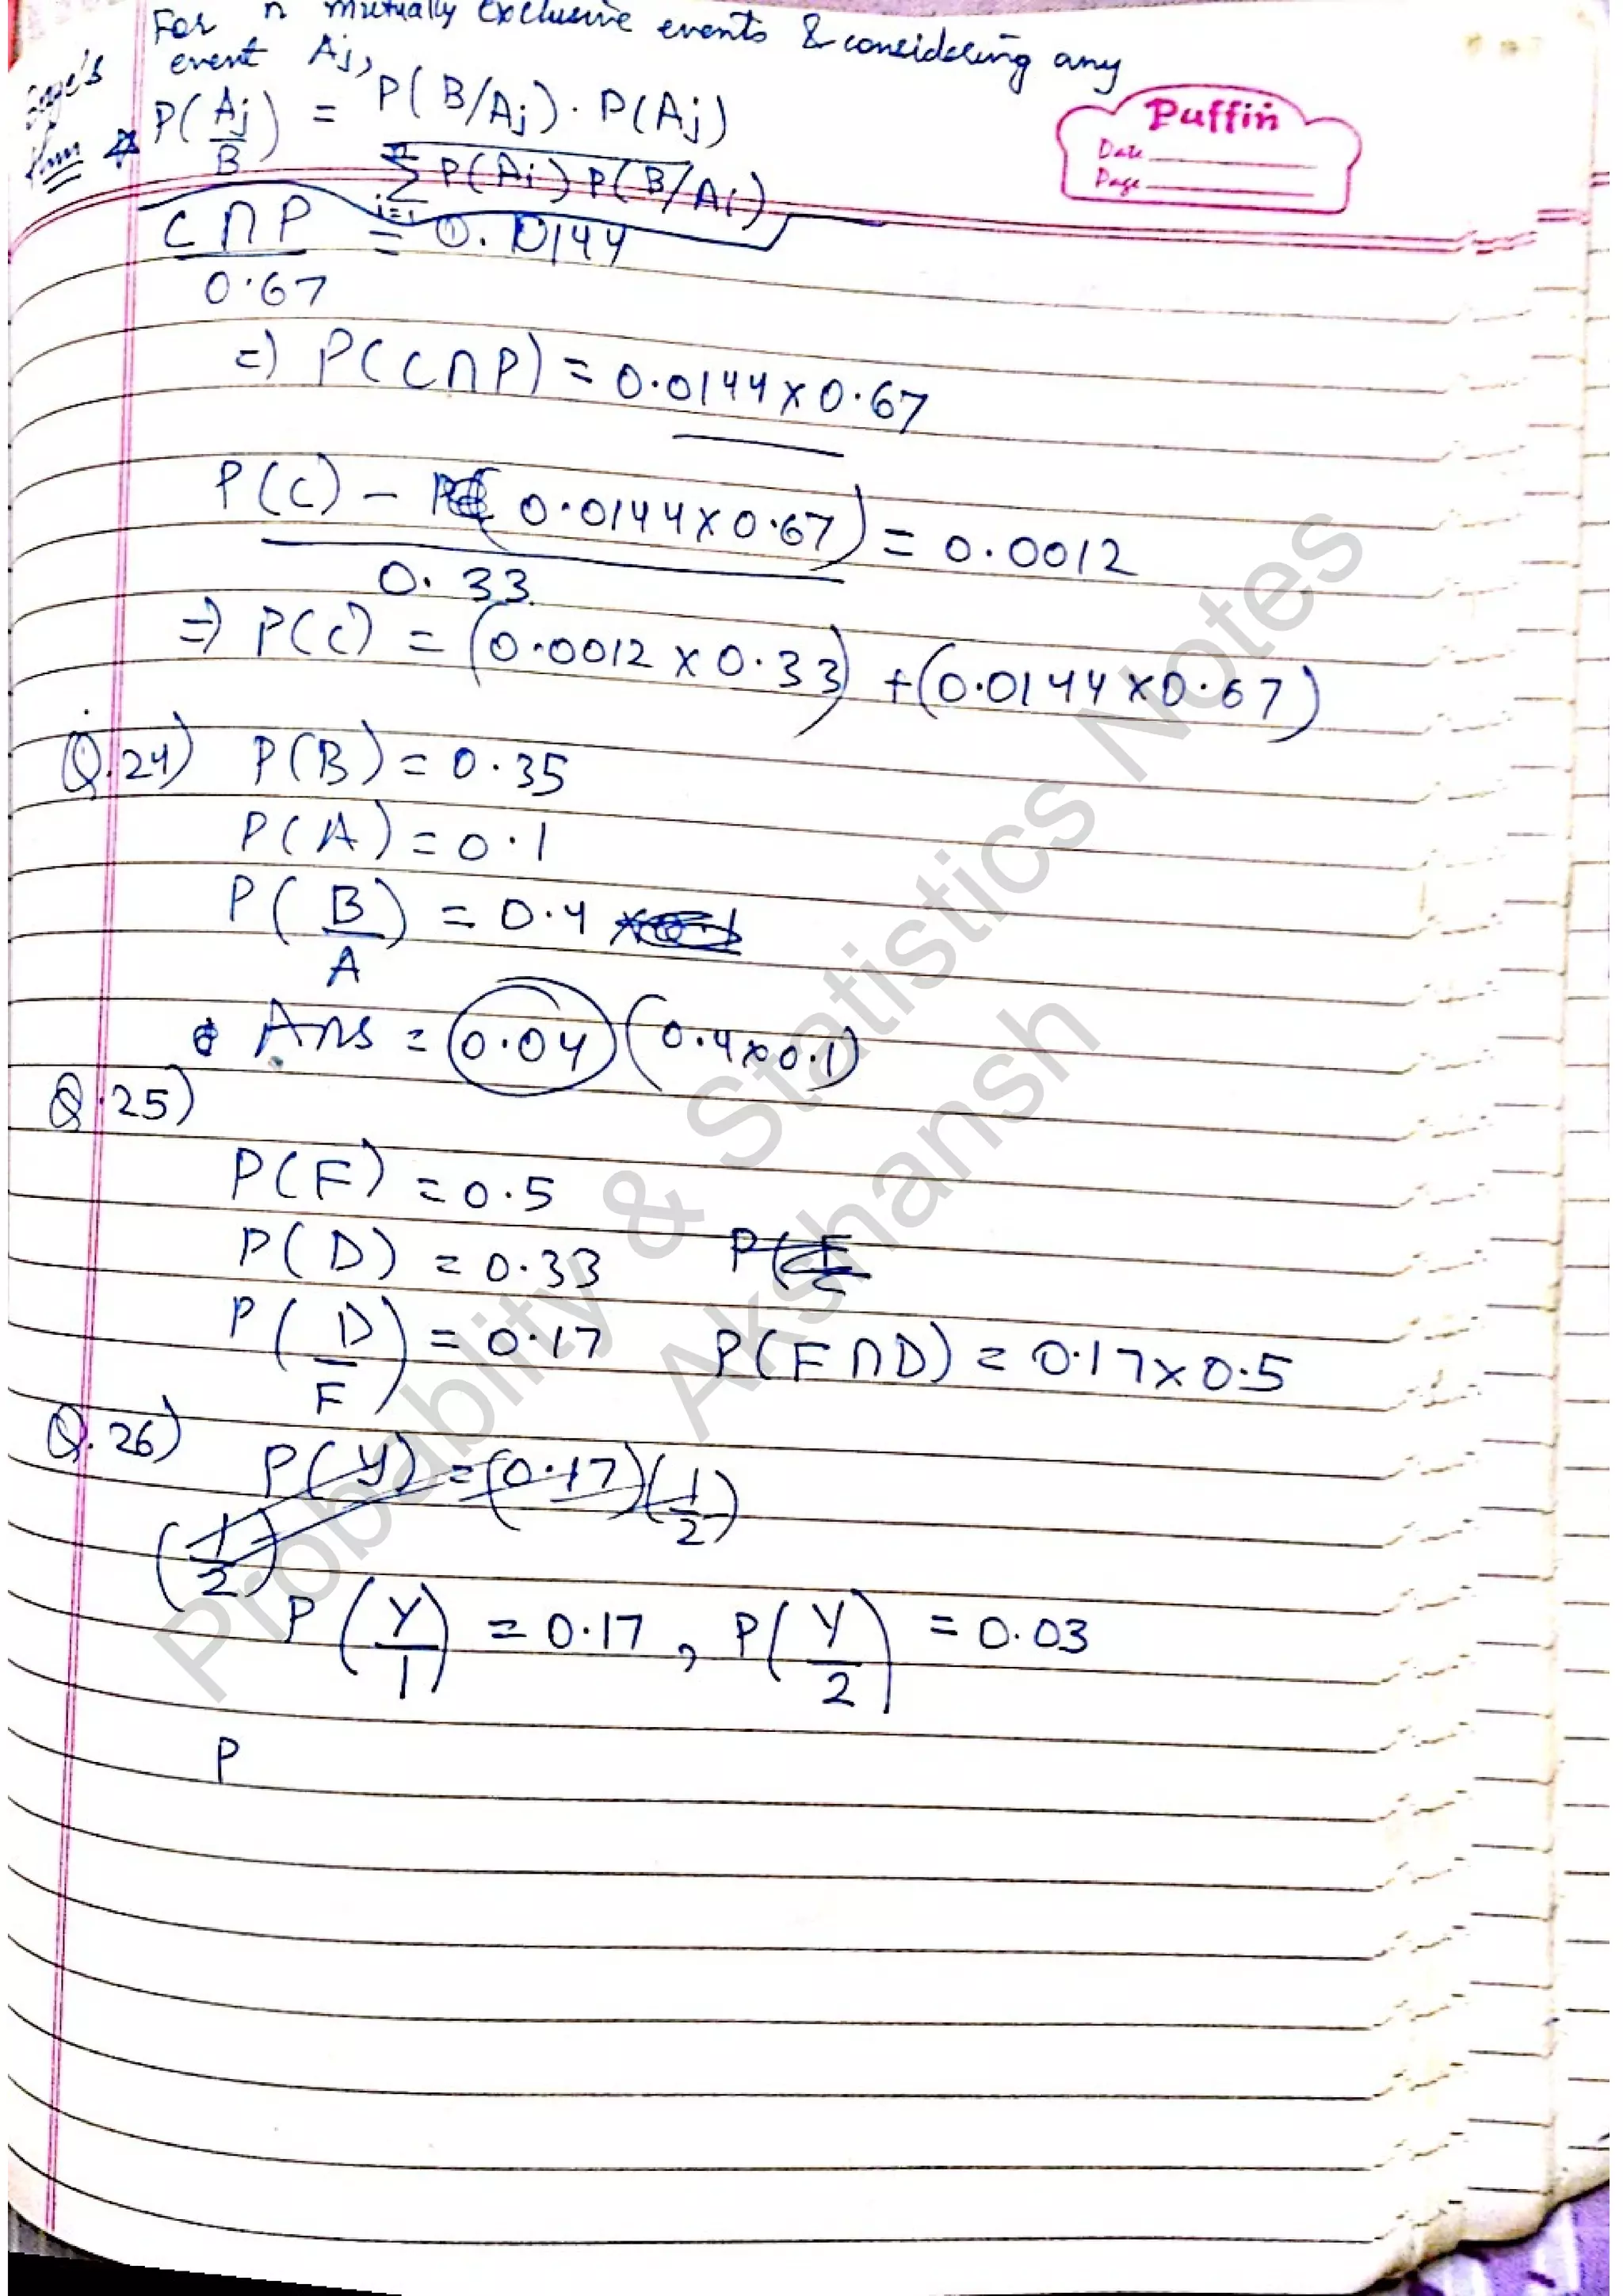 For n mutually exclusive events & considering any
event Aj,
Baye's
thm ☆ P(Aj/B) = P(B/Aj) . P(Aj)
n∑i=1 P(Ai) P(B/Ai)
Puffin
Date
Page
C∩P = 0.0144
0.67
=) P(C∩P) = 0.0144 x 0.67
P(C) - (0.0144 x 0.67) = 0.0012
0.33
=) P(C) = (0.0012 x 0.33) + (0.0144 x 0.67)
Q.24) P(B) = 0.35
P(A) = 0.1
P(B/A) = 0.4
Ans = 0.04 (0.4 x 0.1)
Q.25)
P(F) = 0.5
P(D) = 0.33
P(D/F) = 0.17 P(F∩D) = 0.17 x 0.5
Q.26) P(Y) = (0.17)(1/2)
(1/2)
P(Y/1) = 0.17, P(Y/2) = 0.03
P
Probablity & Statistics Notes
Akshansh